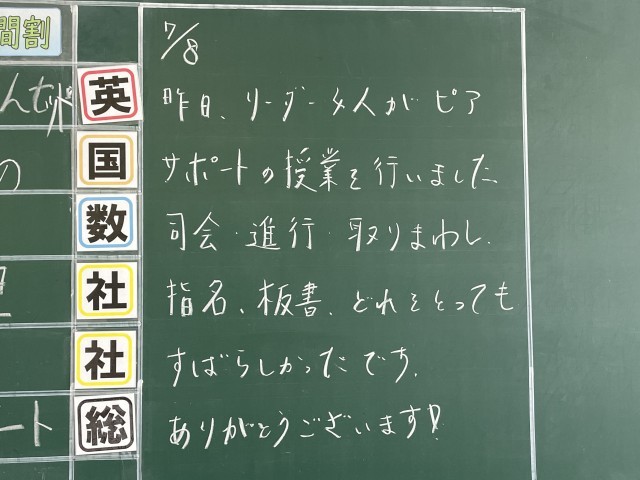 間割
英
国
数
社
社
総
ート
の
7/8
昨日、リーダー4人がピア
サポートの授業を行いました
司会・進行・取りまわし、
指名、板書、どれをとっても
すばらしかったです。
ありがとうございます!